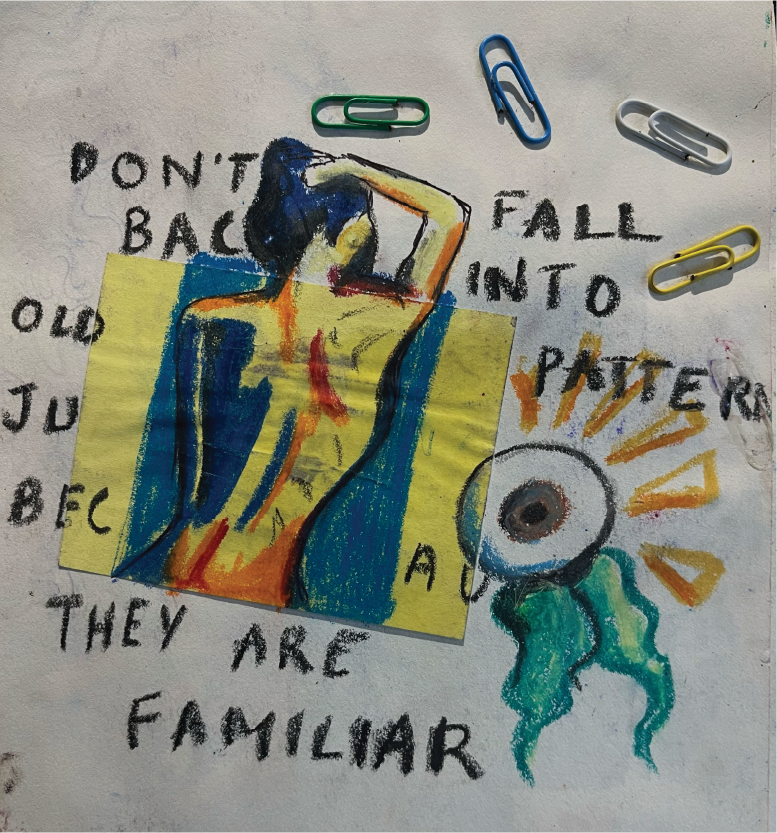 DON'T
BAC FALL
INTO
OLD
PATTERN
JU
BEC AU
THEY ARE
FAMILIAR